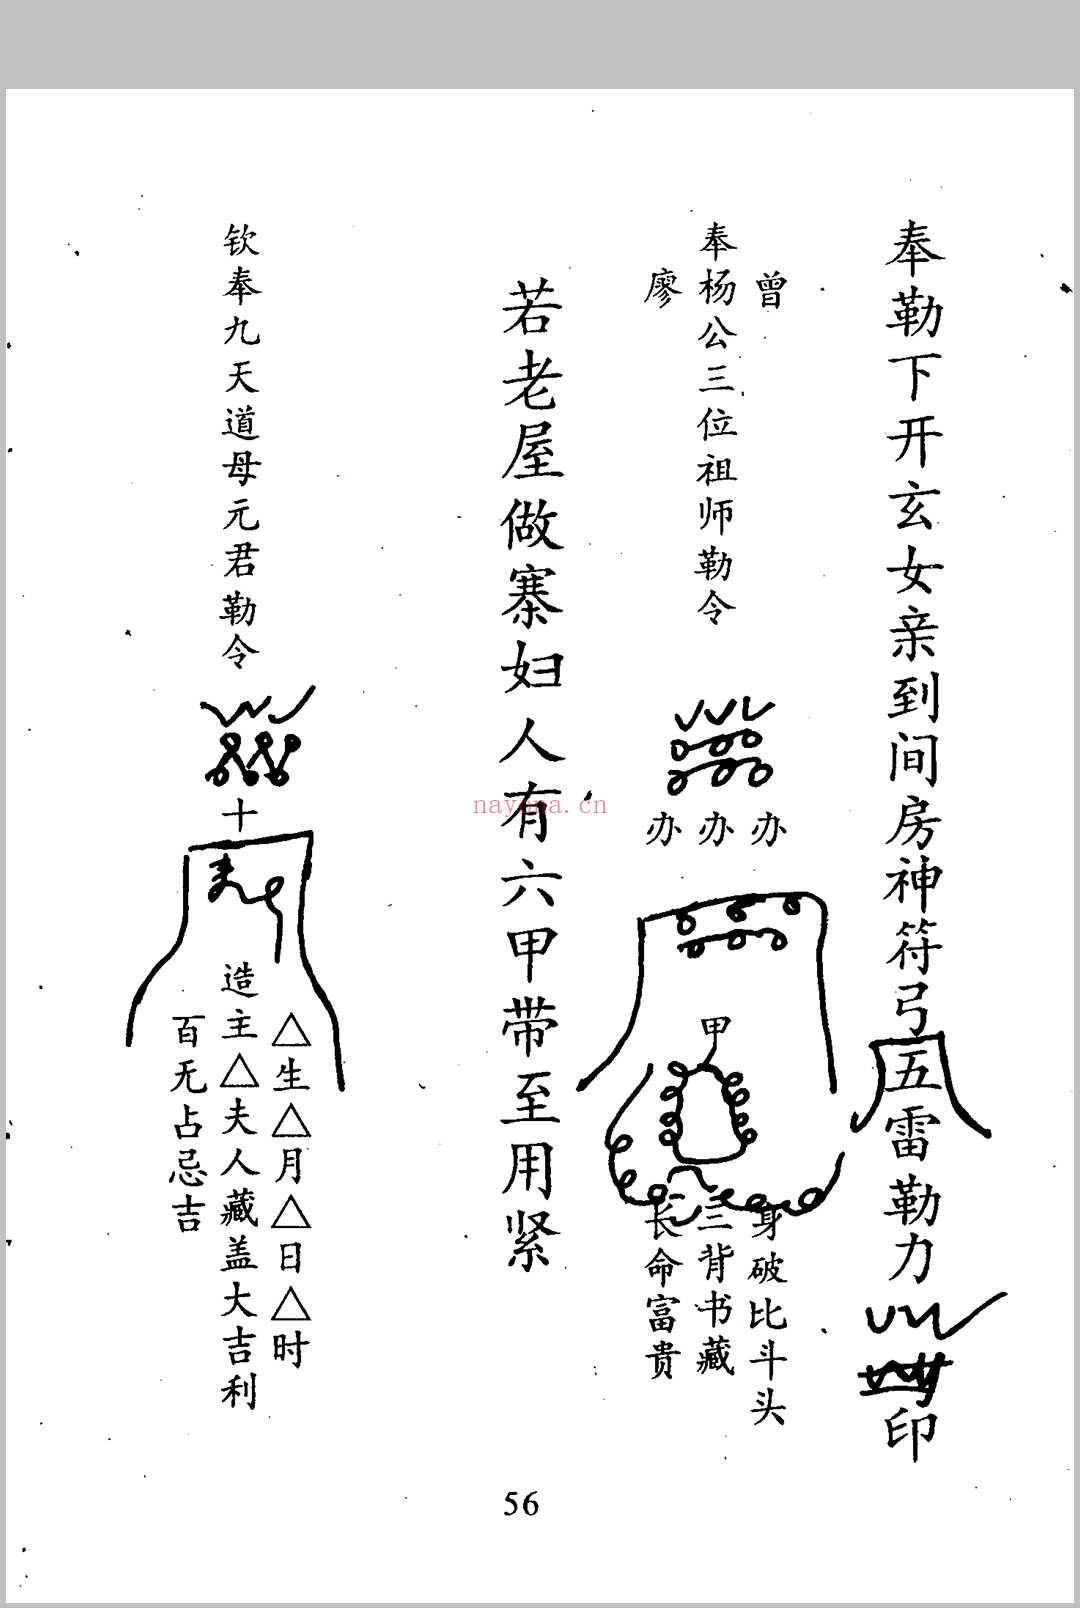 奉勒下开玄女亲到间房神符弓五雷勒力
印
曾
奉杨公三位祖师勒令
廖
办办办
甲
身破比斗头
三背书藏
长命富贵
若老屋做寨妇人有六甲带至用紧
钦奉九天道母元君勒令
十
△生△月△日△时
造主△夫人藏盖大吉利
百无占忌吉
nayona.cn
56